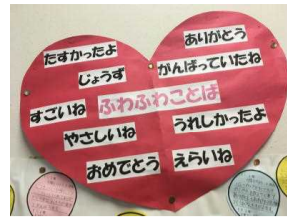 たすかったよ
じょうず
すごいね
やさしいね
おめでとう
ふわふわことば
ありがとう
がんばっていたね
うれしかったよ
えらいね